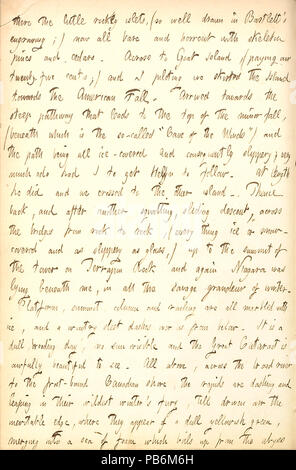 there the little rocky islets, (so well drawn in Bartlett's
engraving;) now all bare and borrent with skeleton
pines and cedars. Across to Goat Island (paying our
twenty five cents;) and I piloting we started the Island
towards the American Fall. Arrived towards the
steep pathway that leads to the top of the minor fall,
(beneath which is the so-called "Cave of the Winds") and
the path being all ice-covered and consequently slippery; very
much ado had I to get Helen to follow. At length
he did and we crossed to the other island. Thence
back, and after another squatting, sliding descent, across
the bridge from rock to rock (every thing ice or snow-
covered and as slippery as glass,) up to the summit of
the tower on Terrapin Rock and again Niagara was
lying beneath me, in all the savage grandeur of winter.
Platform, summit, column and railing are all marbled with
ice, and a wintry sleet dashes over us from below. It is a
dull brooding day, no sun visible and the Great Cataract is
awfully beautiful to see. All above, across the broad river
to the frost-bound Canadian shore, the rapids are dashing and
leaping in their wildest winter's fury, till driven over the
inevitable edge, where they appear of a dull yellowish green,
merging into a sea of foam which boils up from the abyss
alamy
PB6M6H